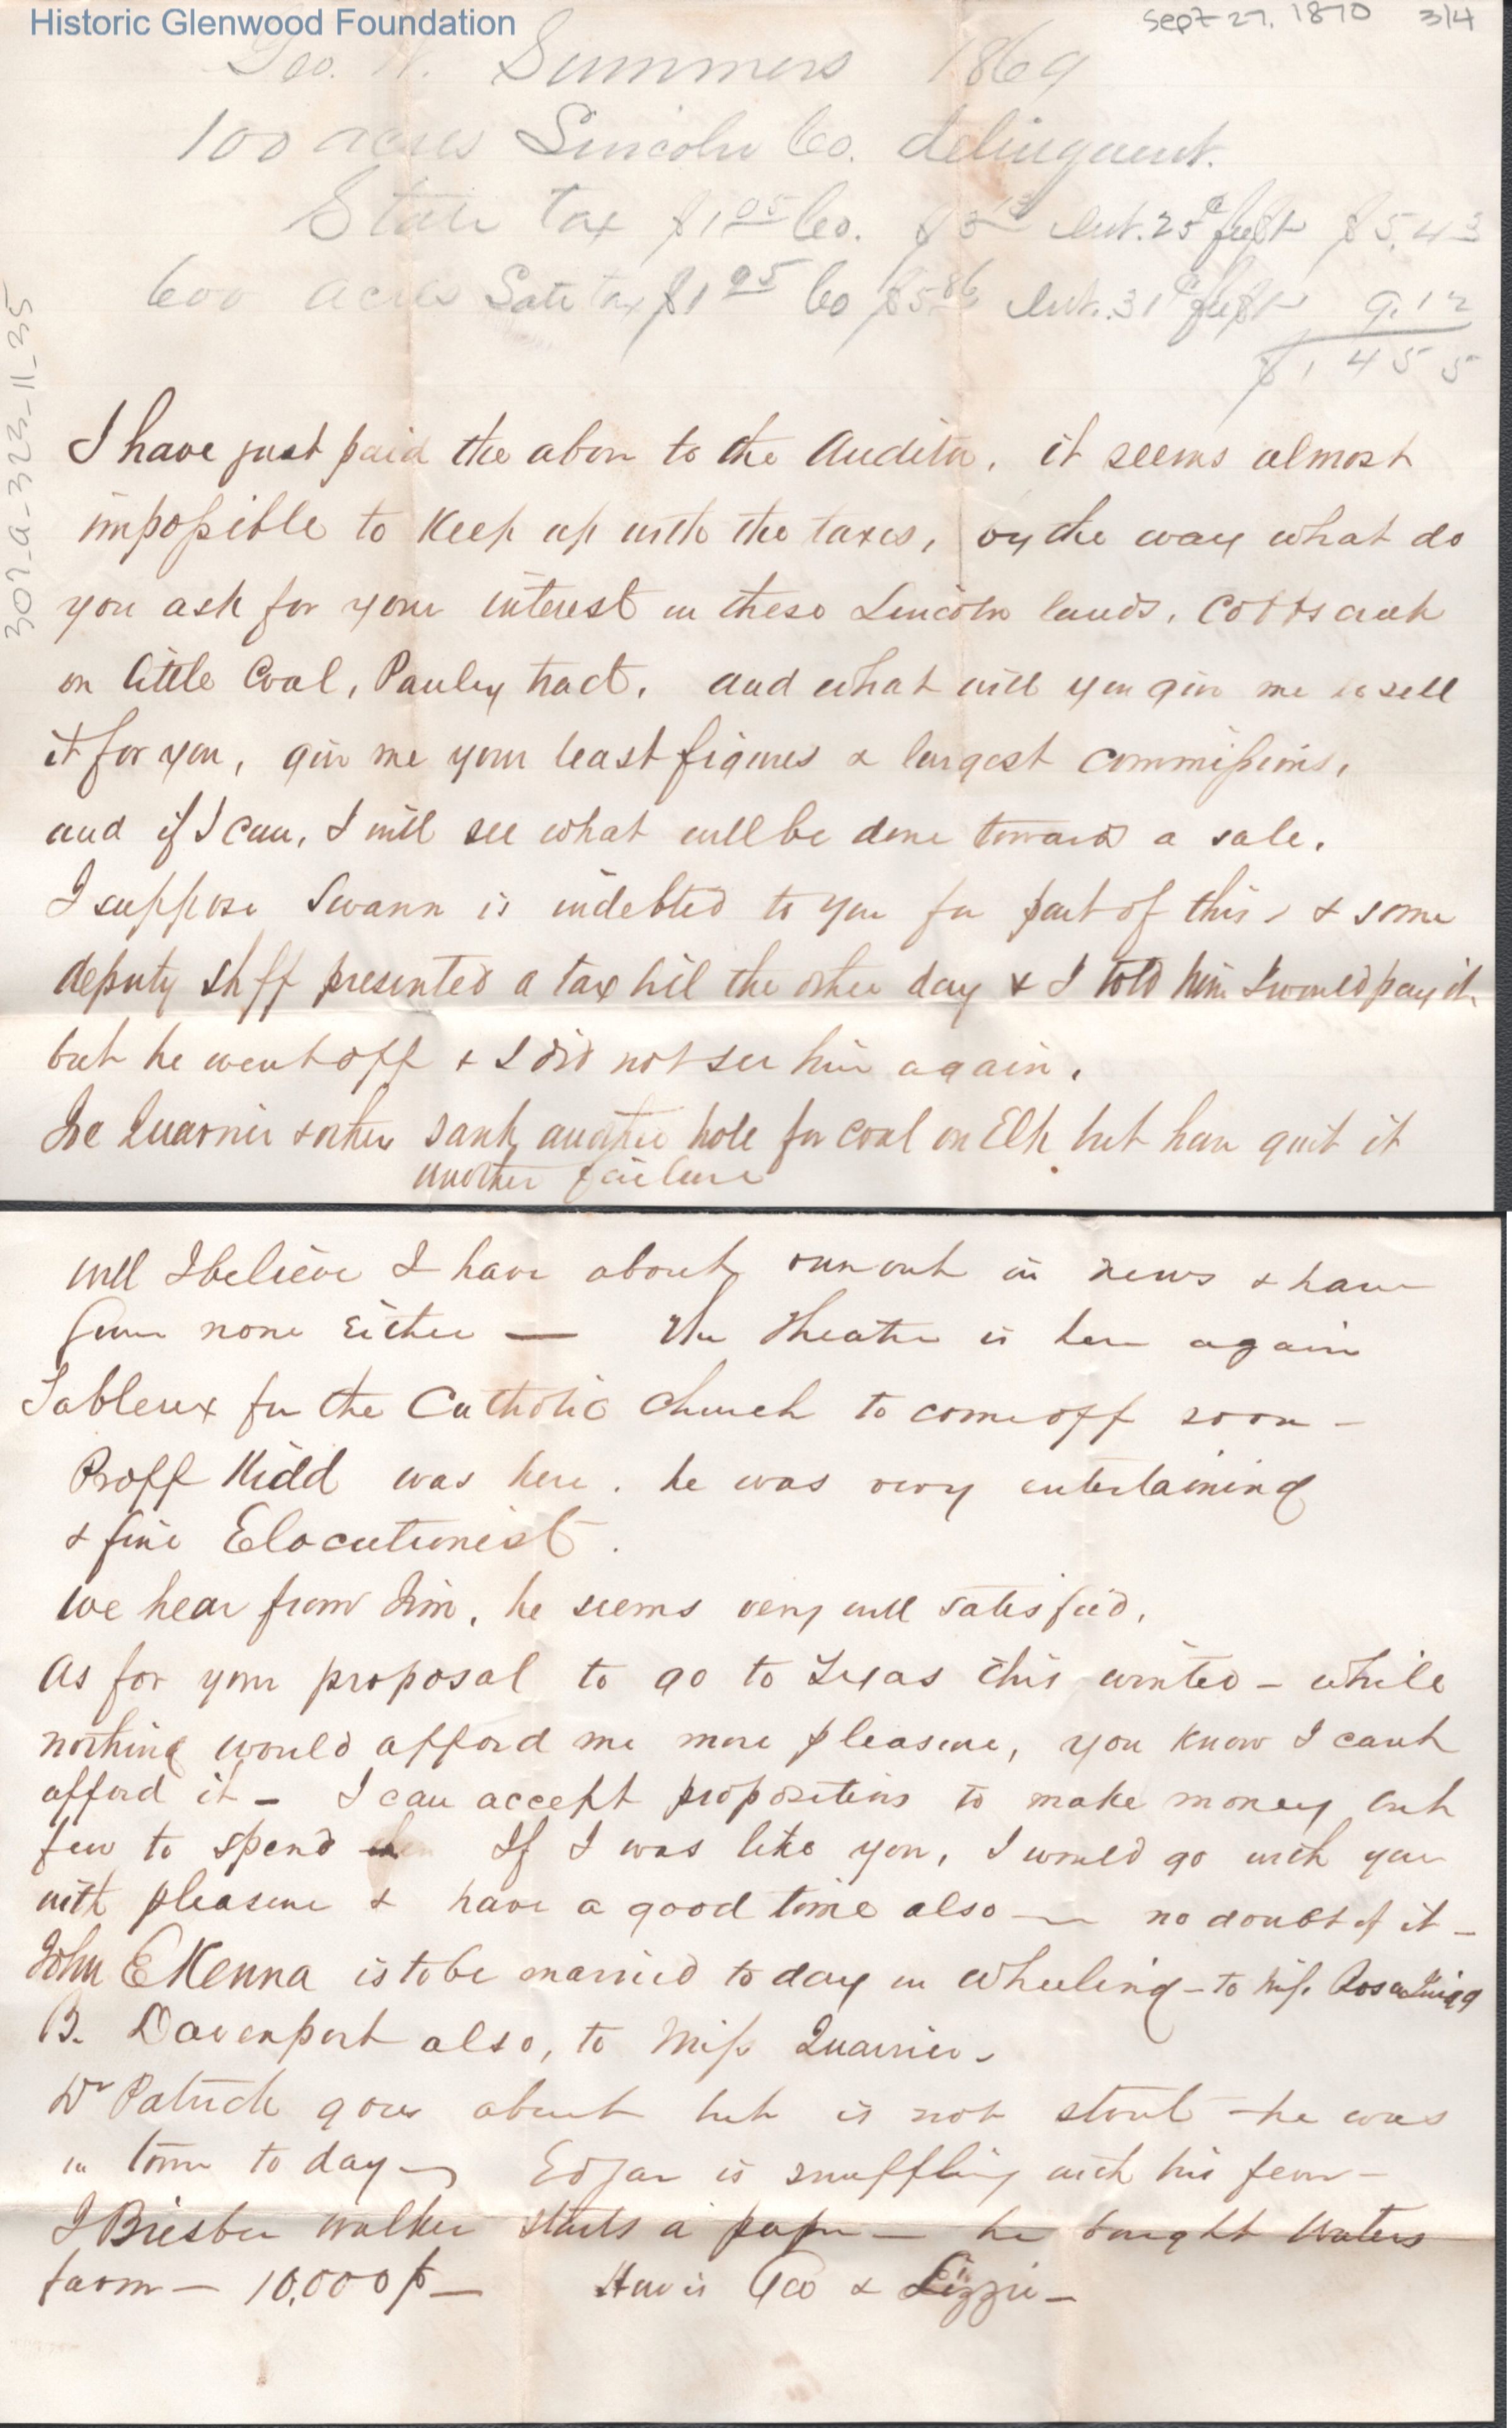 Historic Glenwood Foundation
Sept 27, 1870 3/4
307-a-323-11-35
Geo. W. Summers 1869
100 acres Lincoln Co. delinquent.
State tax $1 05 Co. $3 13 Int. 25 $5,43
600 acres Sate tax $1 95 Co $5 86 Int. 31 9.12
$1455
I have just paid the abov to the Auditor, it seems almost
impossible to keep up with the taxes, by the way what do
you ask for your interest in these Lincoln lands, Cobbs creek
on little Coal, Pauley tract, and what will you giv me to sell
it for you, giv me your least figures & largest commissions,
and if I can, I will see what will be done toward a sale.
I suppose Swann is indebted to you for part of this, & some
deputy Shff presented a tax bil the other day & I told him I would pay it
but he went off & I did not see him again.
Quarrier & others sank another hole for coal on Elk but hav quit it
another failure
well I believe I have about run out in news & have
none either — The Theatre is here again
Tableux for the Catholic Church to come off soon -
Proff Kidd was here. he was very entertaining
& fine Elocutionist.
we hear from Jim, he seems very well satisfied,
As for your proposal to go to Texas this winter - while
nothing would afford me more pleasure, you know I cant
afford it - I can accept propositions to make money but
few to spend If I was like you, I would go with you
with pleasure & have a good time also — no doubt of it -
John E Kenna is to be married to day in Wheeling - to Miss Rosa Quigg
B. Davenport also, to Miss Quarrier -
Dr Patrick goes about but is not stout - he was
in town to day - Edgar is snuffling with his fever -
J Brisben walker starts a paper - he bought Waters
farm - 10,000$ - How is Geo & Lizzie -